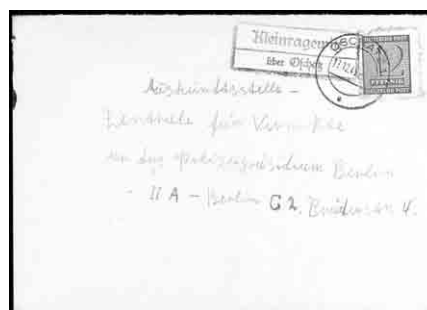 Kleinragewitz
über Oschatz
OSCHATZ
DEUTSCHE POST
12
PFENNIG
DEUTSCHE POST
Auskunftsstelle -
Zentrale für Vermißte
an das Polizeipräsidium Berlin
- II A - Berlin C 2.
4.